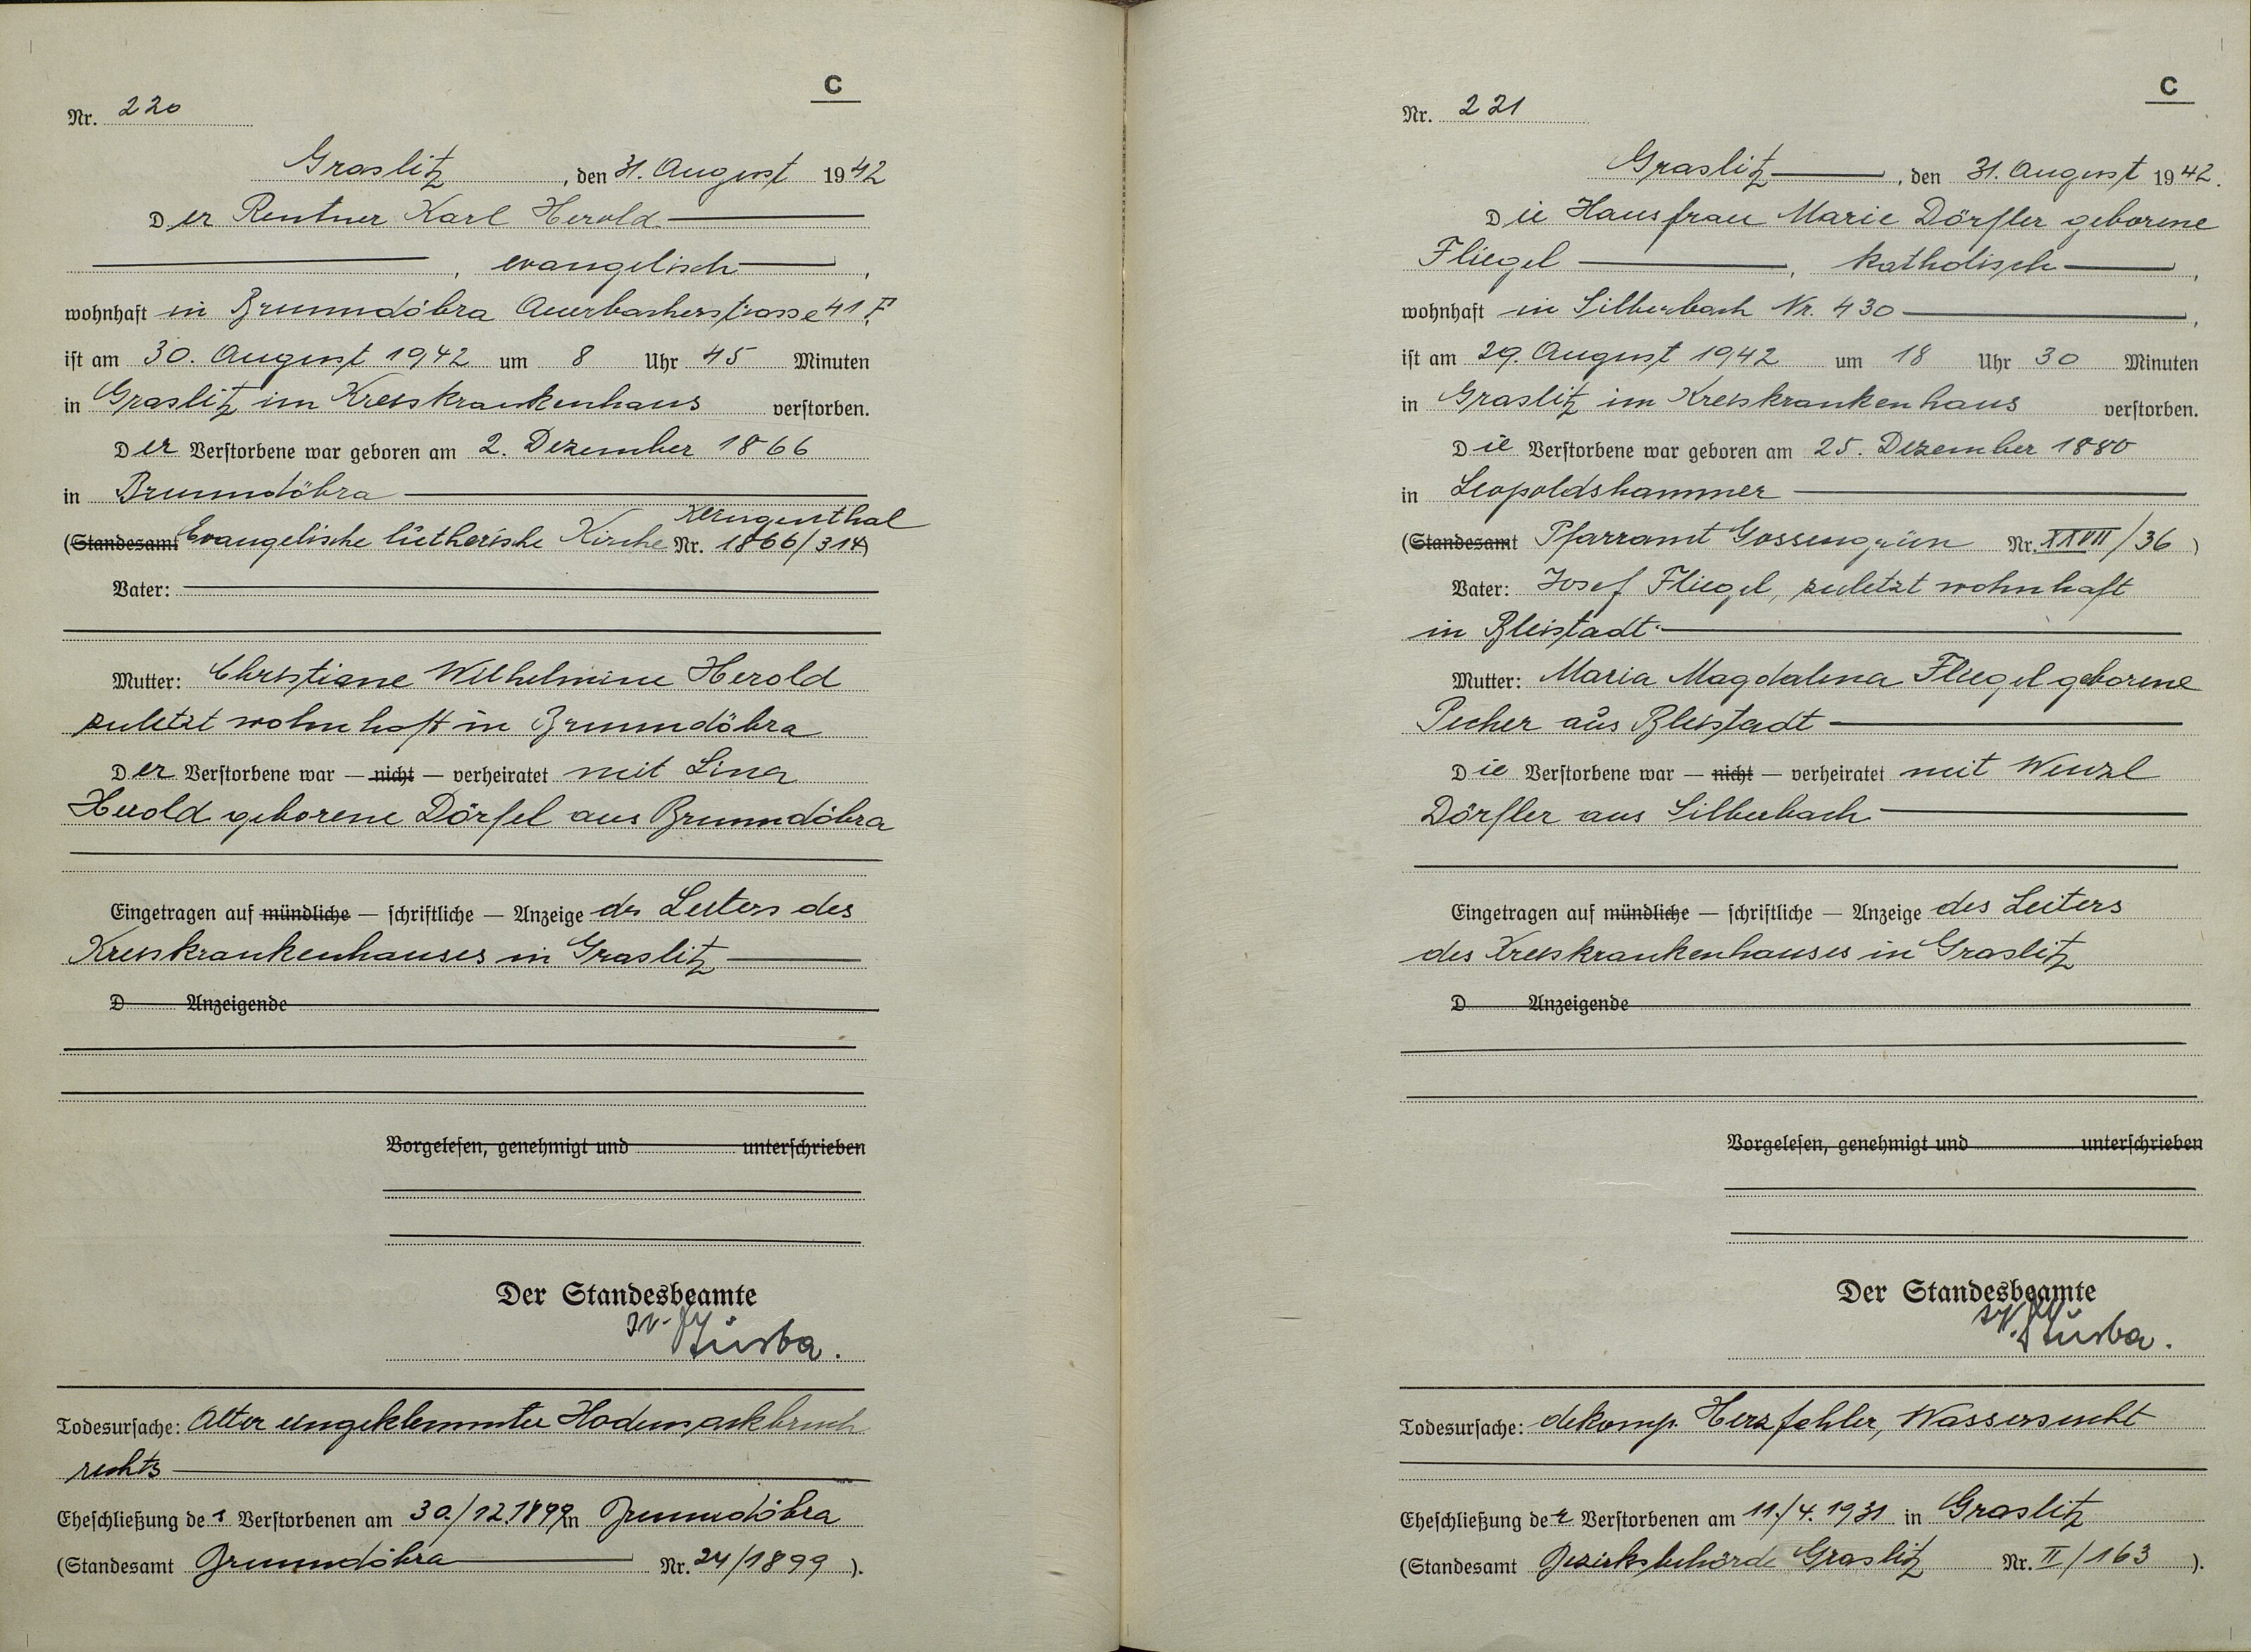 C
Nr. 220
Graslitz, den 31. August 1942
Der Rentner Karl Herold
, evangelisch,
wohnhaft in Brunndöbra Auerbacherstrasse 41 F,
ist am 30. August 1942 um 8 Uhr 45 Minuten
in Graslitz im Kreiskrankenhaus verstorben.
Der Verstorbene war geboren am 2. Dezember 1866
in Brunndöbra
Klingenthal
(Standesamt Evangelische lutherische Kirche Nr. 1866/314)
Vater:
Mutter: Christiane Wilhelmine Herold
zuletzt wohnhaft in Brunndöbra
Der Verstorbene war — nicht — verheiratet mit Lina
Herold geborene Dörfel aus Brunndöbra
Eingetragen auf mündliche — schriftliche — Anzeige des Leiters des
Kreiskrankenhauses in Graslitz
D Anzeigende
Vorgelesen, genehmigt und unterschrieben
Der Standesbeamte
Todesursache: Alter eingeklemmter Hodensackbruch
rechts
Eheschließung des Verstorbenen am 30./12.1899 in Brunndöbra
(Standesamt Brunndöbra Nr. 24/1899).
C
Nr. 221
Graslitz, den 31. August 1942.
Die Hausfrau Marie Dörfler geborene
Fliegel, katholisch,
wohnhaft in Silberbach Nr. 430,
ist am 29. August 1942 um 18 Uhr 30 Minuten
in Graslitz im Kreiskrankenhaus verstorben.
Die Verstorbene war geboren am 25. Dezember 1880
in Leopoldshammer
(Standesamt Pfarramt Gossengrün Nr. XXVII/36)
Vater: Josef Fliegel, zuletzt wohnhaft
in Bleistadt
Mutter: Maria Magdalena Fliegel geborene
Pecher aus Bleistadt
Die Verstorbene war — nicht — verheiratet mit Wenzl
Dörfler aus Silberbach
Eingetragen auf mündliche — schriftliche — Anzeige des Leiters
des Kreiskrankenhauses in Graslitz
D Anzeigende
Vorgelesen, genehmigt und unterschrieben
Der Standesbeamte
Todesursache: dekomp. Herzfehler, Wassersucht
Eheschließung der Verstorbenen am 11./4.1931 in Graslitz
(Standesamt Bezirksbehörde Graslitz Nr. II/163).